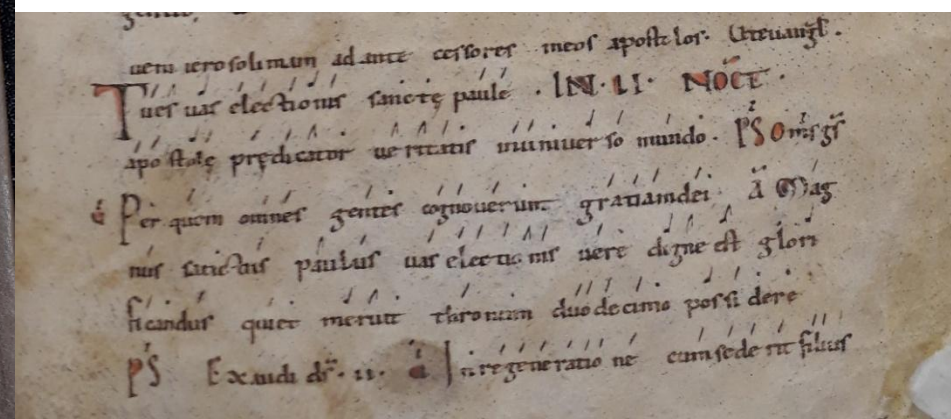 ueni ierosolimam ad ante cessores meos apostolos.
Tu es uas electionis sanctę paule . IN. II. NOCT.
apostolę prędicator ueritatis inuniuerso mundo. PS Om̄s gs̄
a Per quem omnes gentes cognouerunt gratiam dei. A Mag
nus sanctus paulus uas electionis uere digne est glori
ficandus qui et meruit thronum duodecimo possidere
PS Exaudi ds̄. ii. a In regeneratione cum sederit filius